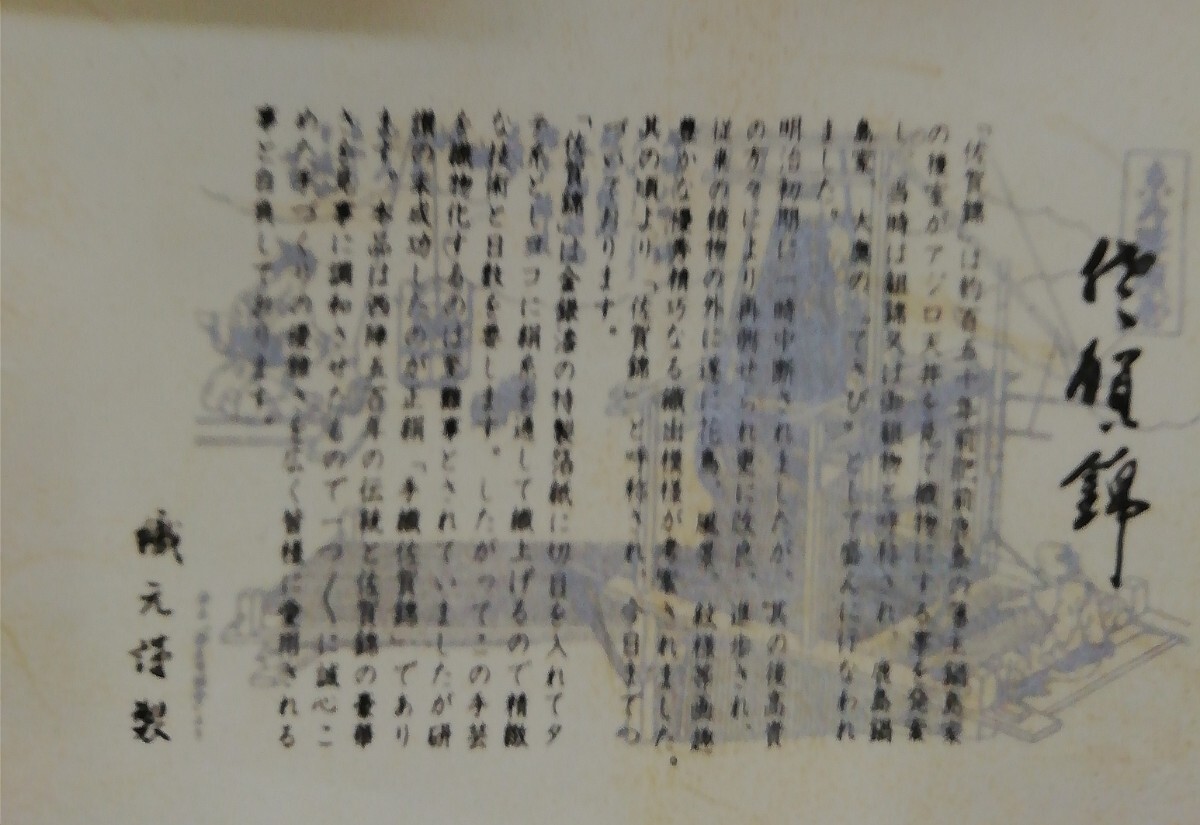 佐賀錦
「佐賀錦」は約百五十年前肥前鹿島の藩主鍋島家
の後室がアジロ天井を見て織物にする事を発案
し、当時は組錦又は御組物と呼称され、鹿島鍋
島家、大奥の〝てさび〟として盛んに行なわれ
ました。
明治初期に一時中断されましたが、其の後高貴
の方々により再興せられ更に改良、進歩され、
従来の織物の外に遂に花鳥、風景、紋様等画趣
豊かな優秀精巧なる織出模様が考案されました。
其の頃より「佐賀錦」と呼称され、今日までつ
づいております。
「佐賀錦」は金銀漆の特製箔紙に切目を入れてタ
テ糸としヨコに絹糸を通して織上げるので精緻
な技術と日数を要します。したがってこの手芸
を織物化するのは至難事とされていましたが研
讃の末成功したのが正絹「手織佐賀錦」であり
ます。本品は西陣五百年の伝統と佐賀錦の豪華
さを見事に調和させたものでつづくに誠心こ
め手づくりの優雅さを広く皆様に愛用される
事と自負しております。
織元謹製